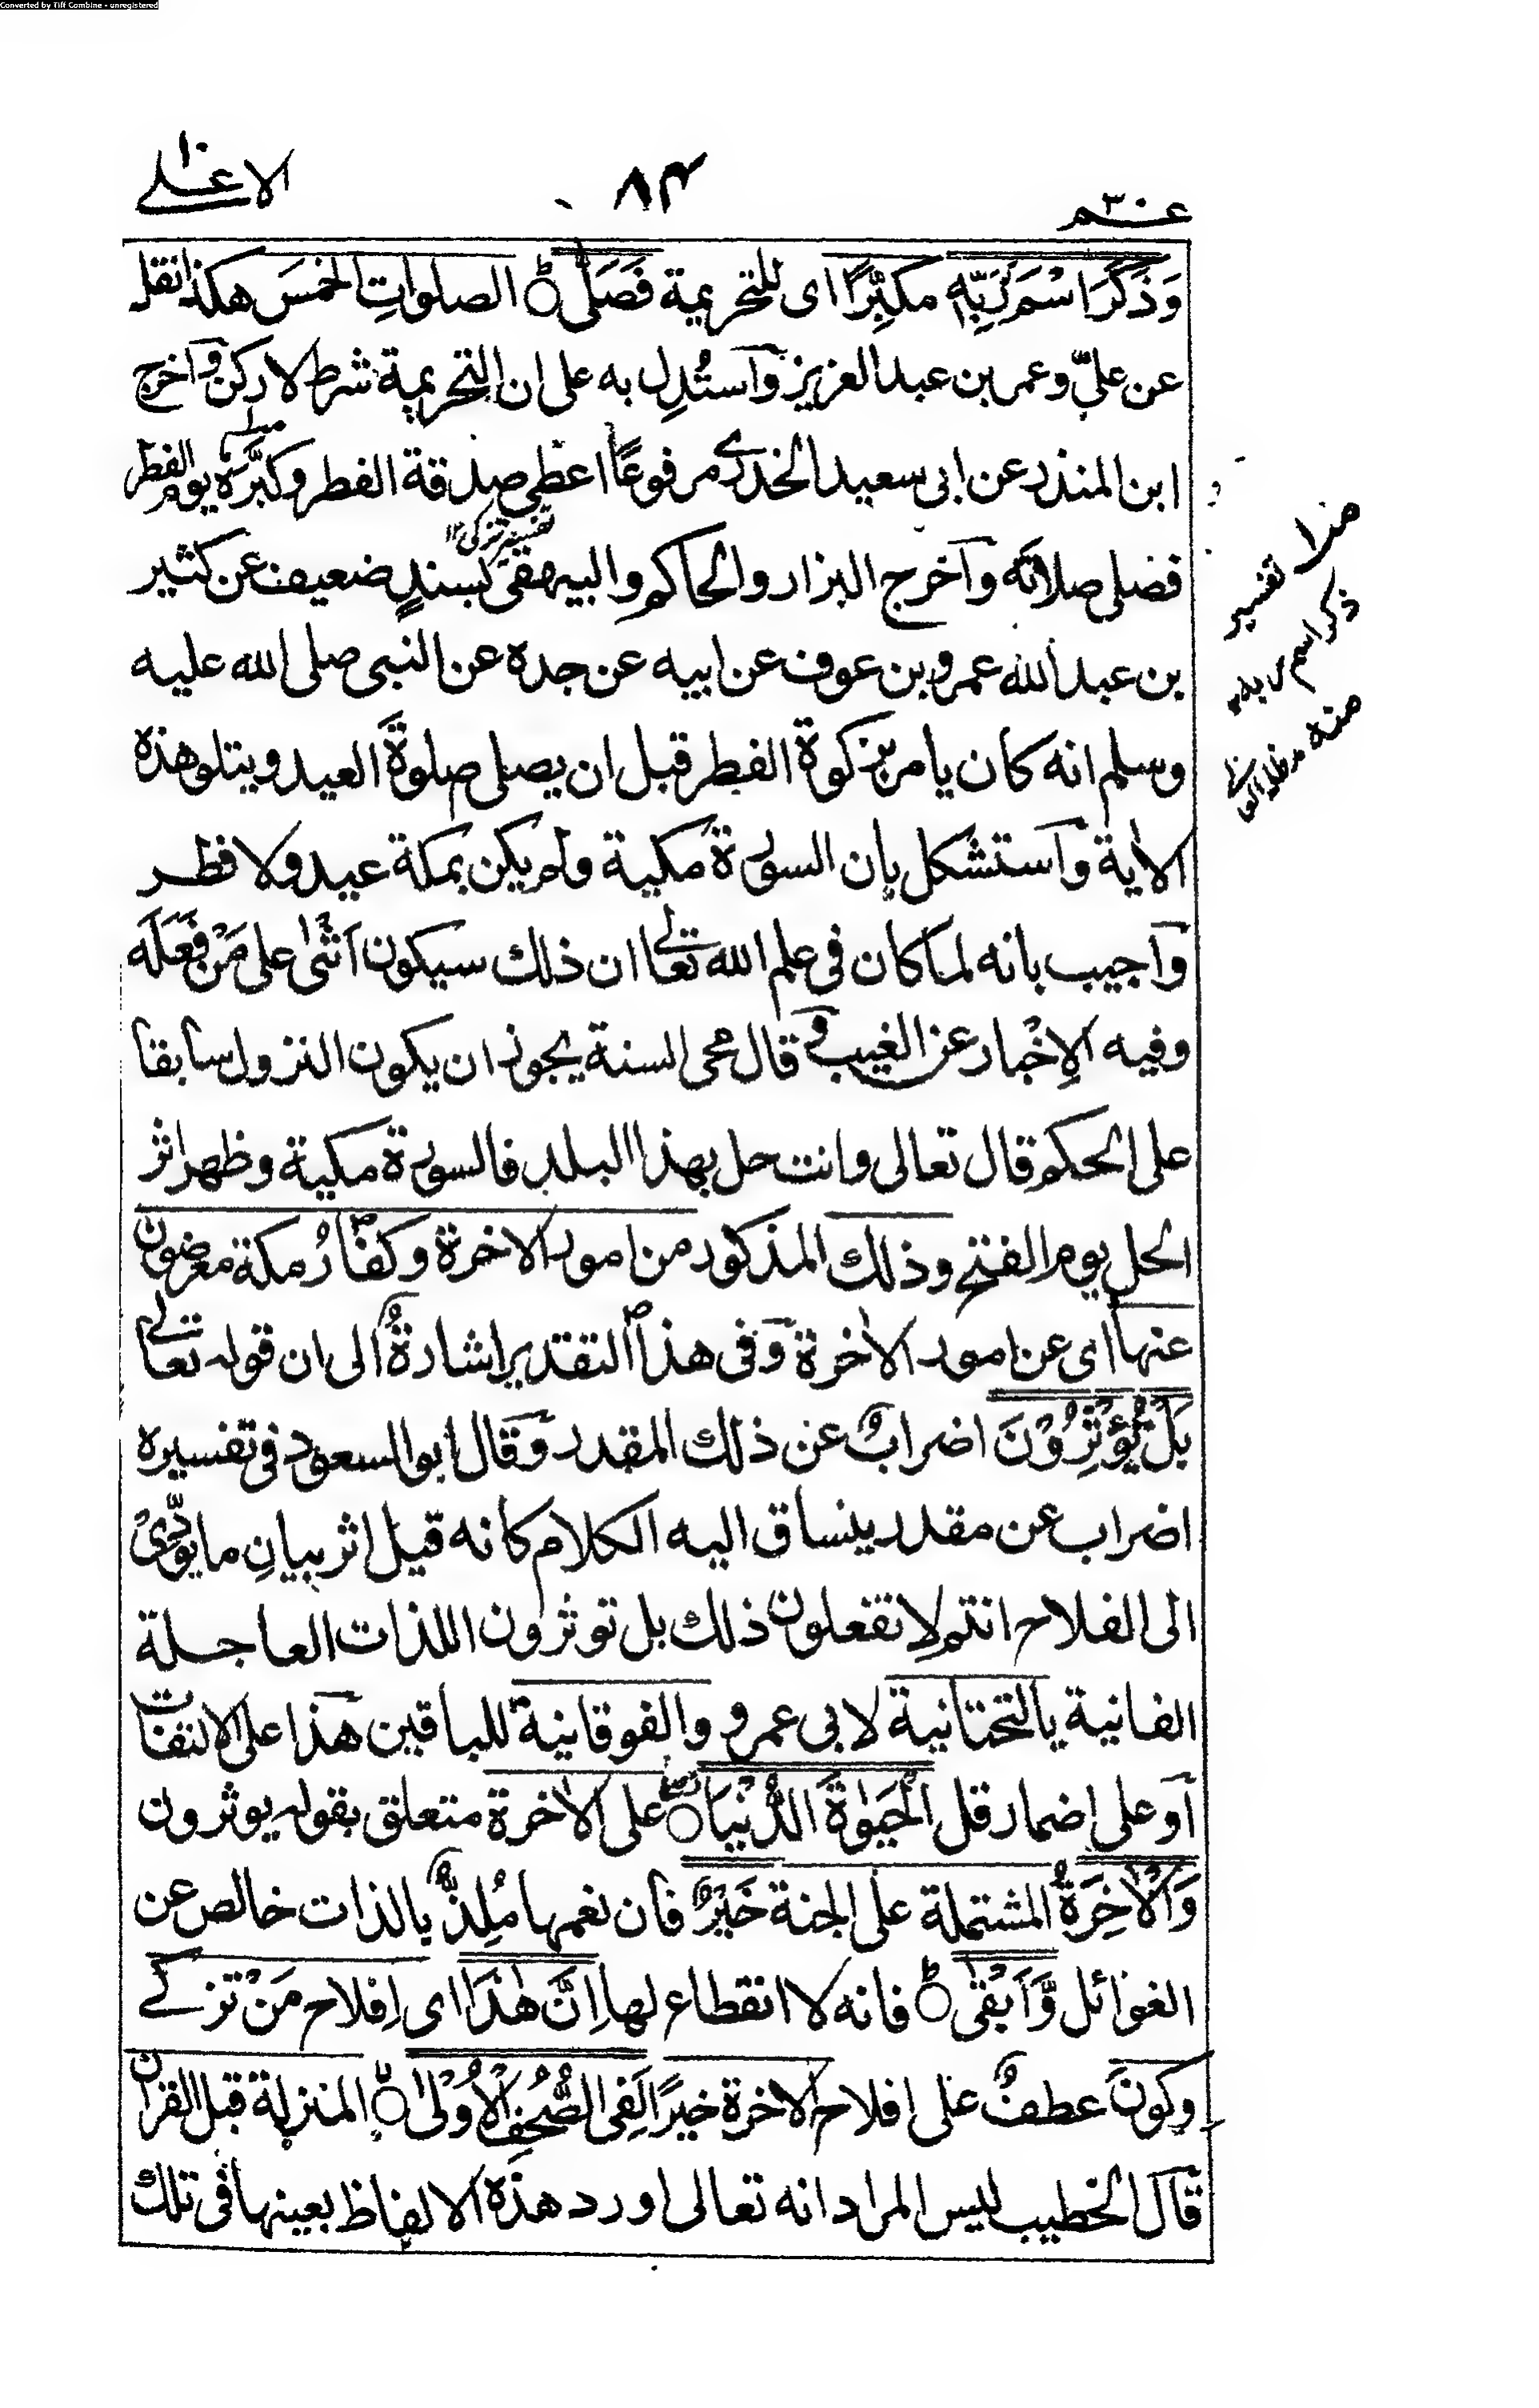 Converted by Tiff Combine - unregistered
عم ٣٠
٨٤
الاعلے
وَذَكَرَ اسْمَ رَبِّهٖ مكبِّرًا ای للتحريمة فَصَلّٰىؕ الصلواتِ الخمسَ هكذا نقل
عن عليّ وعمر بن عبد العزيز واستُدِل به على ان التحريمة شرط لا ركن واخرج
ابن المنذر عن ابی سعيد الخدری مرفوعًا اعطی صدقة الفطر وكبَّر يوم الفطر
تفسير تزکی ١٢
فصلی صلاته واخرج البزار والحاكم والبيهقی بسندٍ ضعيف عن كثير
بن عبد الله عمرو بن عوف عن ابيه عن جده عن النبی صلی الله عليه
وسلم انه كان يامر بزكوة الفطر قبل ان يصلی صلوةَ العيد ويتلو هذه
الاية واستشكل بان السورة مكية ولم يكن بمكة عيد ولا فطر
واجيب بانه لما كان فی علم الله تعالی ان ذلك سيكون اَثنٰی علی مَنْ فَعَلَه
وفيه الاِخْبار عن الغيب وقال محی السنة يجوز ان يكون النزول سابقا
علی الحكم قال تعالی وانت حل بهذا البلد فالسورة مكية وظهر اثر
الحل يوم الفتح وذلك المذكور من امور الاخرة وكفّارُ مكة معرضون
عنها ای عن امور الاٰخرة وفی هذا التقدير اشارةٌ الی ان قوله تعالی
بَلْ تُؤْثِرُوْنَ اضرابٌ عن ذلك المقدر وقال ابو السعود فی تفسيره
اضراب عن مقدر ينساق اليه الكلام كانه قيل اثر بيانِ ما يؤدّیْ
الی الفلاح انتم لا تفعلون ذلك بل توثرون اللذات العاجلة
الفانية بالتحتانية لابی عمرو والفوقانية للباقين هذا علی الالتفات
او علی اضمار قل الْحَيٰوةَ الدُّنْيَا علی الاٰخرة متعلق بقوله يوثرون
وَالْاٰخِرَةُ المشتملة علی الجنة خَيْرٌ فان نعمها مُلِذٌّ بالذات خالص عن
الغوائل وَّاَبْقٰیؕ فانه لا انقطاع لها اِنَّ هٰذَا ای اِفلاح مَنْ تزکے
وكونَ عطفٌ علی افلاح الاخرة خيرًا لَفِی الصُّحُفِ الْاُوْلٰیۙ المنزلة قبل القران
قال الخطيب ليس المراد انه تعالی اورد هذه الالفاظ بعينها فی تلك
هذا تفسير
ذكر اسم ربه
منه